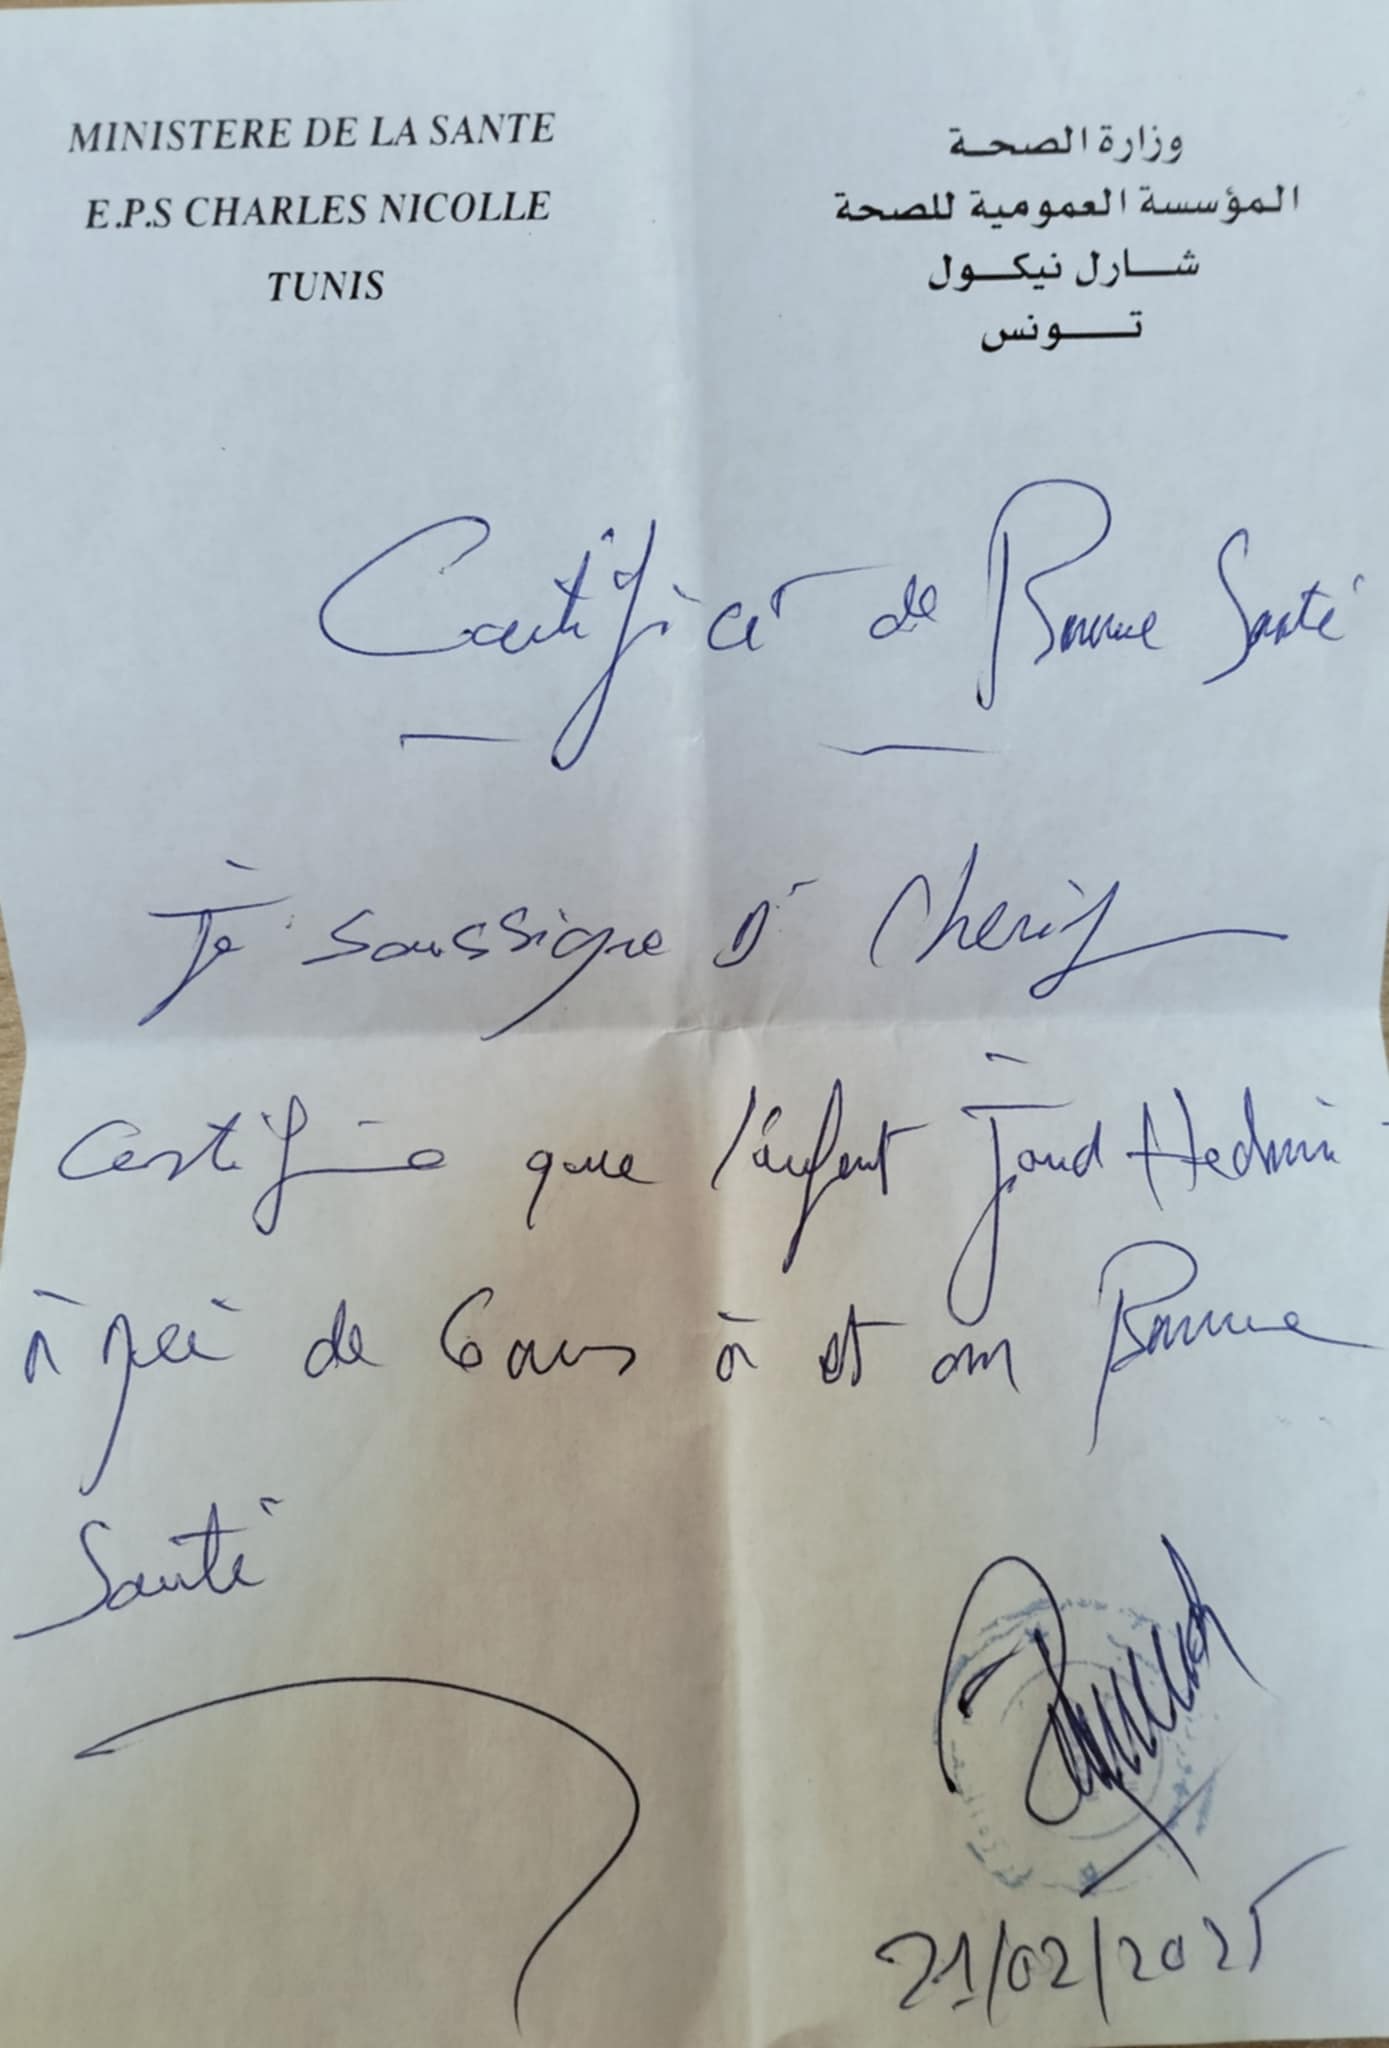 MINISTERE DE LA SANTE
E.P.S CHARLES NICOLLE
TUNIS
وزارة الصحة
المؤسسة العمومية للصحة
شارل نيكول
تونس
Certificat de Bonne Santé
Je soussigne Dr Cherif
Certifie que l'enfant Joud Hedhiri
à gée de 6 ans à et en Bonne
Santé
21/02/2025